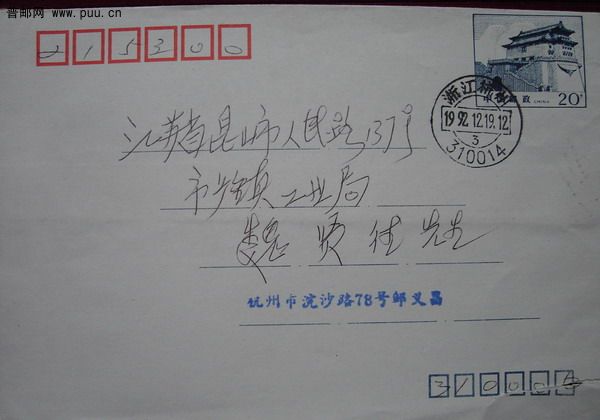 普邮网 www.puu.cn
215300
中国邮政 CHINA
20分
浙江杭州
1992.12.19.12
3
310014
江苏省昆山市人民路137号
市乡镇工业局
魏贤 先生
杭州市浣沙路78号邮义昌
310004